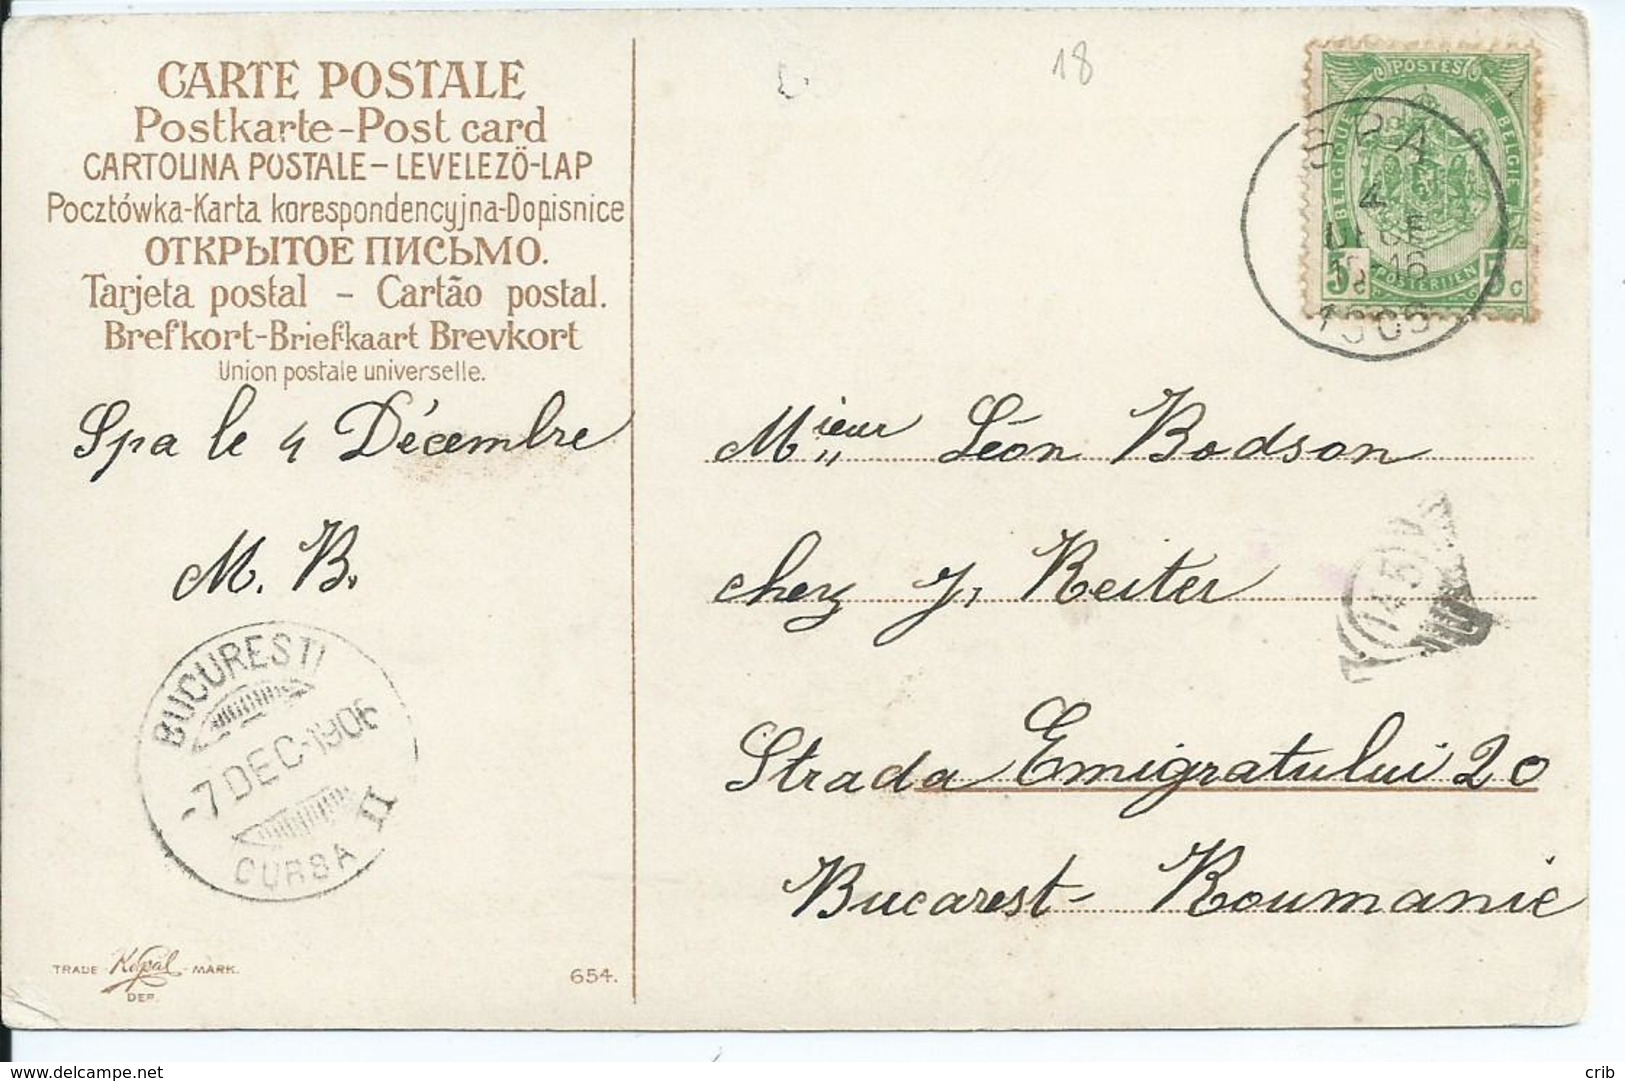 CARTE POSTALE
Postkarte-Post card
CARTOLINA POSTALE-LEVELEZÖ-LAP
Pocztówka-Karta korespondencyjna-Dopisnice
ОТКРЫТОЕ ПИСЬМО.
Tarjeta postal - Cartão postal.
Brefkort-Briefkaart Brevkort
Union postale universelle.
Spa le 4 Décembre
M. B.
BUCURESTI
-7 DEC-1906
CURSA II
TRADE Kopal MARK.
DEP.
654.
18
POSTES
BELGIQUE BELGIE
POSTERIJEN
5c 5c
SPA
4
16
Mieur Léon Bodson
chez J. Reiter
Strada Emigratului 20
Bucarest - Roumanie
145
crib